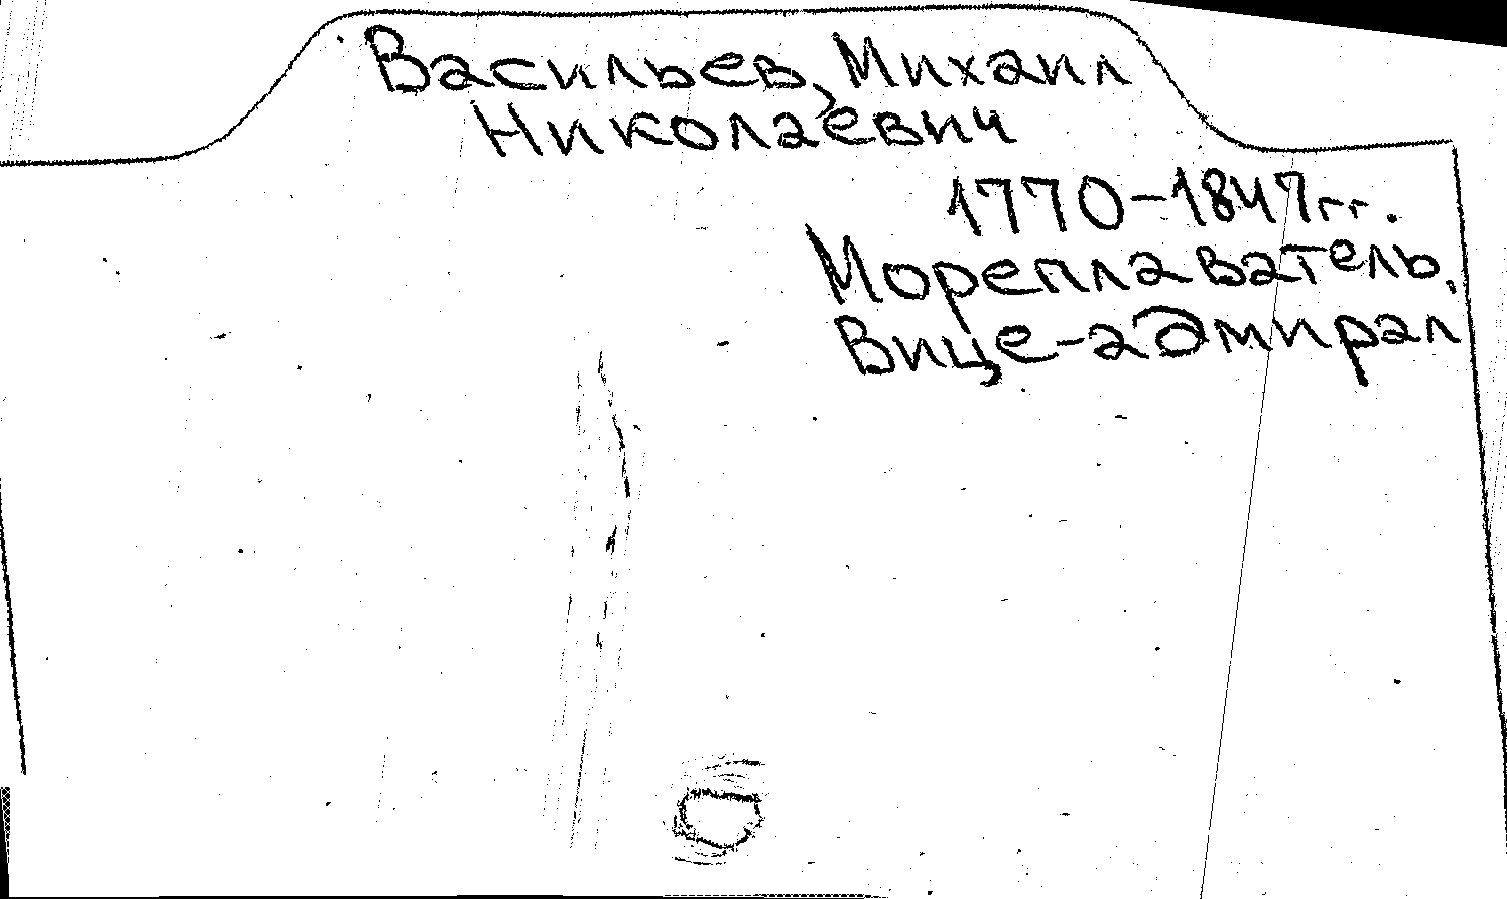 Васильев, Михаил
Николаевич
1770-1847гг.
Мореплаватель.
Вице-адмирал